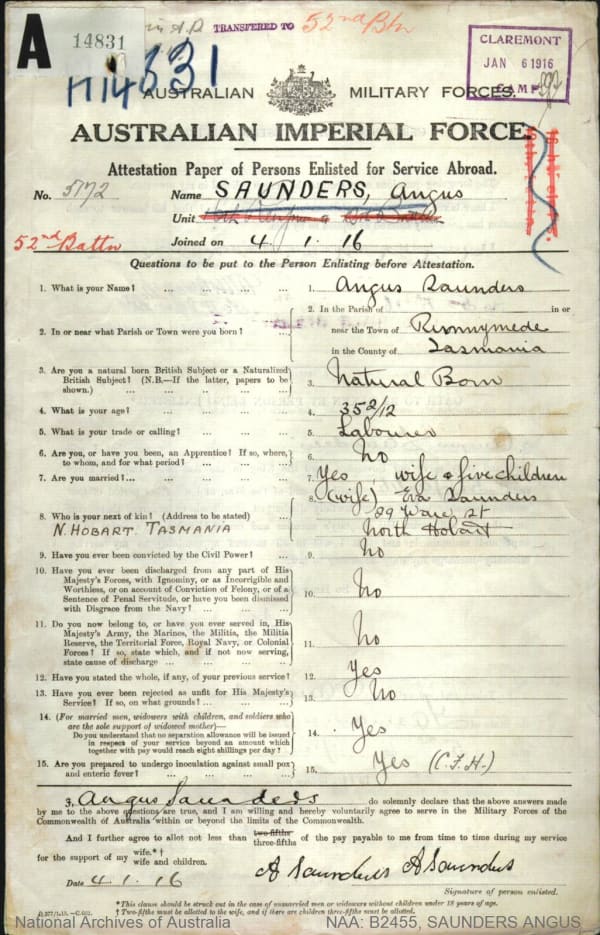 A
14831
TRANSFERED TO
52nd Btn
CLAREMONT
JAN 6 1916
CAMP.
AUSTRALIAN MILITARY FORCES.
AUSTRALIAN IMPERIAL FORCE
Attestation Paper of Persons Enlisted for Service Abroad.
No. 5172
Name SAUNDERS, Angus
Unit
52nd Battn
Joined on 4. 1. 16
Questions to be put to the Person Enlisting before Attestation.
1. What is your Name? ... ... ... ...
1. Angus Saunders
2. In or near what Parish or Town were you born? ...
2. In the Parish of in or
near the Town of Runnymede
in the County of Tasmania
3. Are you a natural born British Subject or a Naturalized
British Subject? (N.B.—If the latter, papers to be
shown.) ... ... ... ...
3. Natural Born
4. What is your age? ... ... ... ...
4. 35 2/12
5. What is your trade or calling? ... ... ...
5. Labourer
6. Are you, or have you been, an Apprentice? If so, where,
to whom, and for what period? ... ... ...
6. No
7. Are you married?... ... ... ... ...
7. Yes, wife & five children
8. Who is your next of kin? (Address to be stated) ...
N. HOBART TASMANIA
8. (wife) Eva Saunders
29 Ware St
North Hobart
9. Have you ever been convicted by the Civil Power? ...
9. No
10. Have you ever been discharged from any part of His
Majesty's Forces, with Ignominy, or as Incorrigible and
Worthless, or on account of Conviction of Felony, or of a
Sentence of Penal Servitude, or have you been dismissed
with Disgrace from the Navy? ... ... ...
10. No
11. Do you now belong to, or have you ever served in, His
Majesty's Army, the Marines, the Militia, the Militia
Reserve, the Territorial Force, Royal Navy, or Colonial
Forces? If so, state which, and if not now serving,
state cause of discharge ... ... ... ...
11. No
12. Have you stated the whole, if any, of your previous service?
12. Yes
13. Have you ever been rejected as unfit for His Majesty's
Service? If so, on what grounds? ... ... ...
13. No
14. (For married men, widowers with children, and soldiers who
are the sole support of widowed mother)—
Do you understand that no separation allowance will be issued
in respect of your service beyond an amount which
together with pay would reach eight shillings per day?
14. Yes
15. Are you prepared to undergo inoculation against small pox
and enteric fever? ... ... ... ...
15. Yes (C.F.H.)
3, Angus Saunders do solemnly declare that the above answers made
by me to the above questions are true, and I am willing and hereby voluntarily agree to serve in the Military Forces of the
Commonwealth of Australia within or beyond the limits of the Commonwealth.
And I further agree to allot not less than two-fifths three-fifths of the pay payable to me from time to time during my service
for the support of my wife.*† wife and children.
A Saunders A Saunders
Date 4. 1. 16
Signature of person enlisted.
*This clause should be struck out in the case of unmarried men or widowers without children under 18 years of age.
† Two-fifths must be allotted to the wife, and if there are children three-fifths must be allotted.
National Archives of Australia
NAA: B2455, SAUNDERS ANGUS